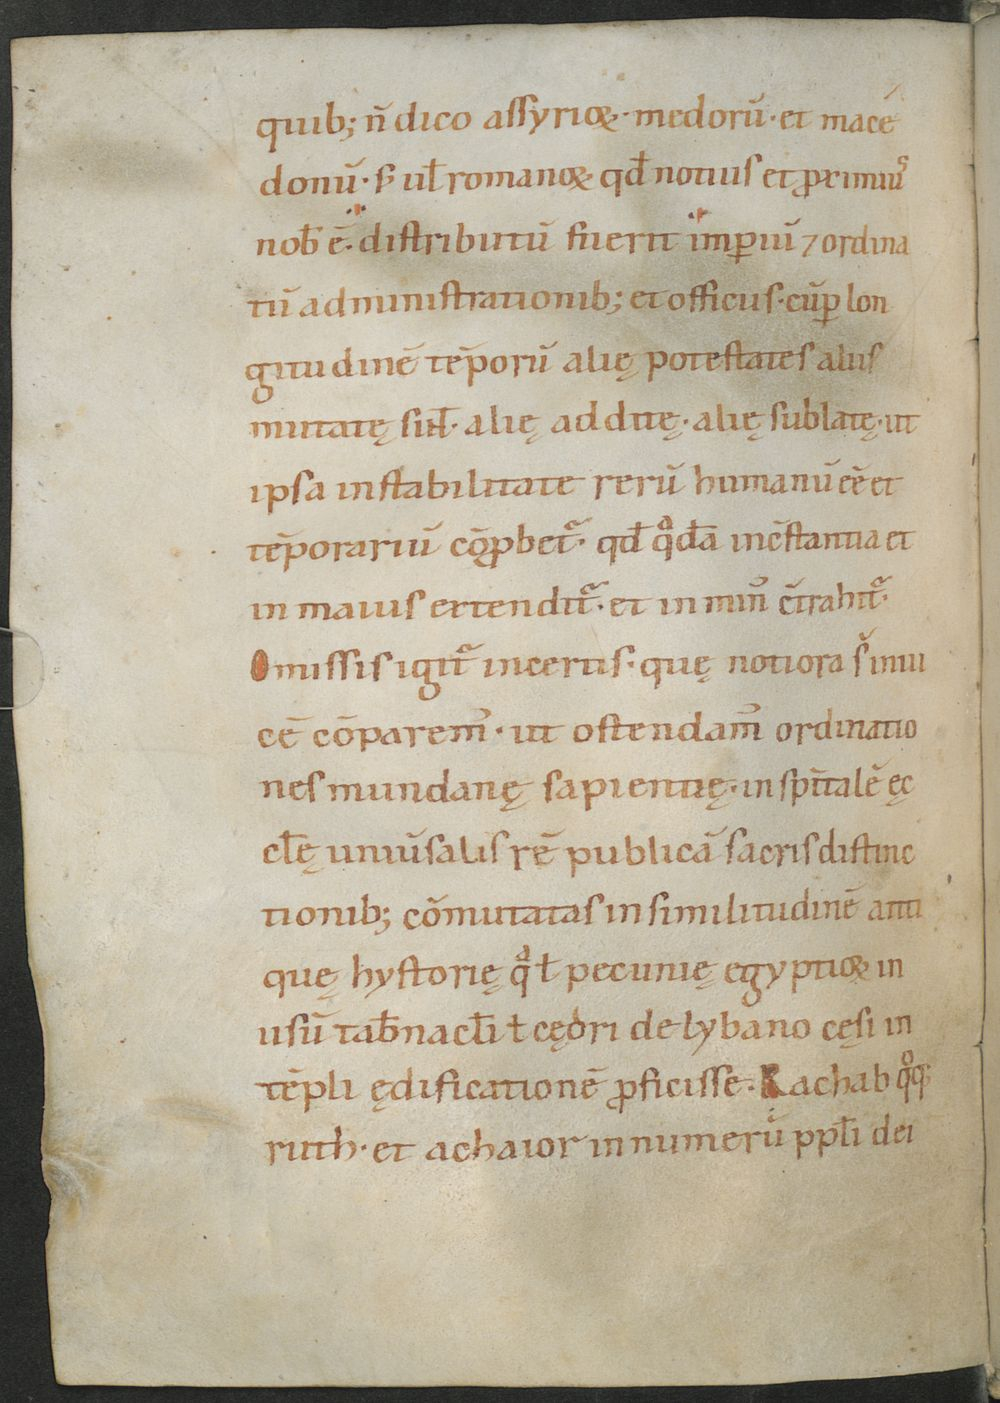 quib; n̄ dico assyrioꝝ· medorū· et mace
donū· s; ul̄ romanoꝝ qd̄ notius et ꝓximiꝰ
nob̄ ē· distributū fuerit imꝑiū ⁊ ordina
tū administrationib; et officiis· cū ꝑ lon
gitudinē tēporū alię potestates aliis
mutatę sint· alię additę· alię sublatę· ut
ipsa instabilitate rerū humanū eē et
tēporariū cōꝓbet᷑· qd̄ qͦdā incōstantia et
in maius extendit᷑· et in minꝰ cōtrahit᷑·
Omissis igit᷑ incertis· quę notiora s̄ inui
cē cōparemꝰ· ut ostendamꝰ ordinatio
nes mundanę sapientię· in spītalē ęc
cl̄ę uniūsalis rē publicā sacris distinc
tionib; cōmutatas in similitudinē anti
quę hystorię qͣ ł pecunię egyptioꝝ in
usū tab̄nacl̄i ł cędri de lybano cęsi in
tēpli ędificationē ꝓficisse· Rachab qͦq;
ruth· et achaior in numerū ppl̄i dei